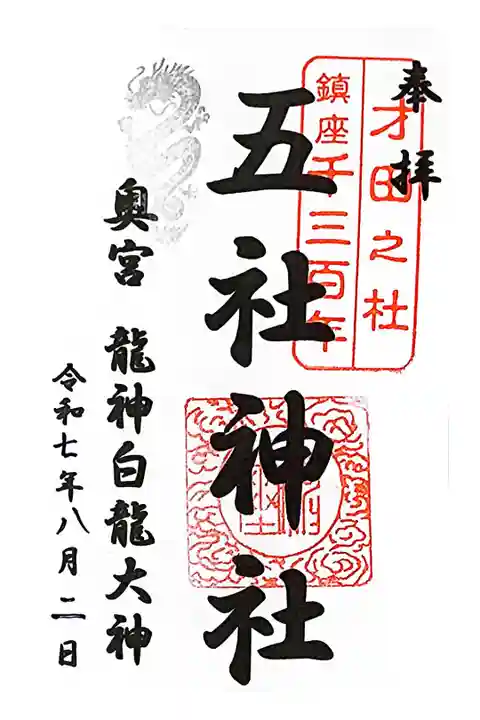 奉拝
才田之杜
鎮座千三百年
五社神社
奥宮 龍神白龍大神
令和七年八月二日